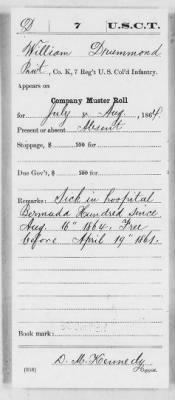 D 7 U.S.C.T.
William Drummond
Privt, Co. K, 7 Reg't U. S. Col'd Infantry.
Appears on
Company Muster Roll
for July & Aug, 1864.
Present or absent Absent
Stoppage, $ 100 for
Due Gov't, $ 100 for
Remarks: Sick in hospital
Bermuda Hundred since
Aug. 16" 1864. Free
before April 19" 1861.
Book mark:
D. M. Kennedy
(358) Copyist.